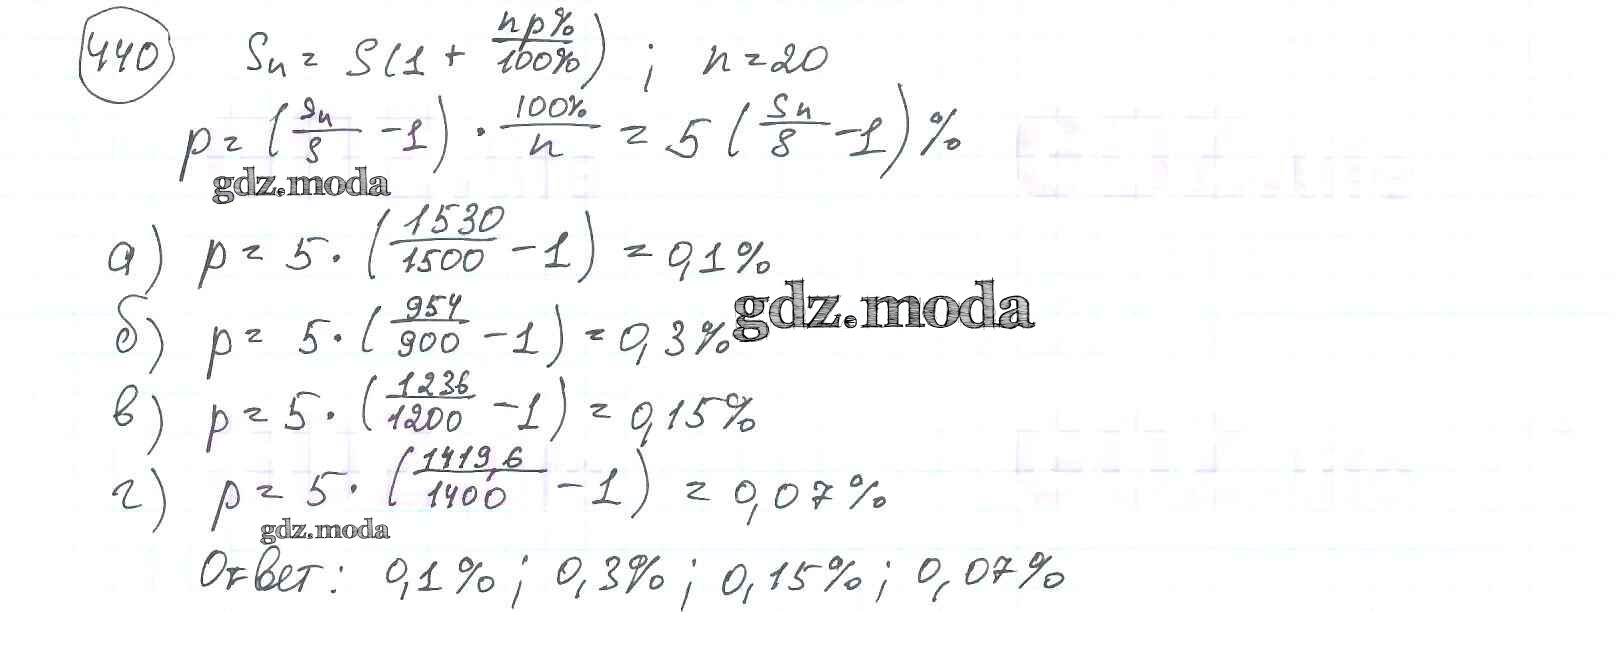 440 Sn = S(1 + np%/100%) ; n = 20
p = (Sn/S - 1) · 100%/n = 5 (Sn/S - 1) %
gdz.moda
а) p = 5 · (1530/1500 - 1) = 0,1%
gdz.moda
б) p = 5 · (954/900 - 1) = 0,3%
в) p = 5 · (1236/1200 - 1) = 0,15%
г) p = 5 · (1419,6/1400 - 1) = 0,07%
gdz.moda
Ответ: 0,1% ; 0,3% ; 0,15% ; 0,07%